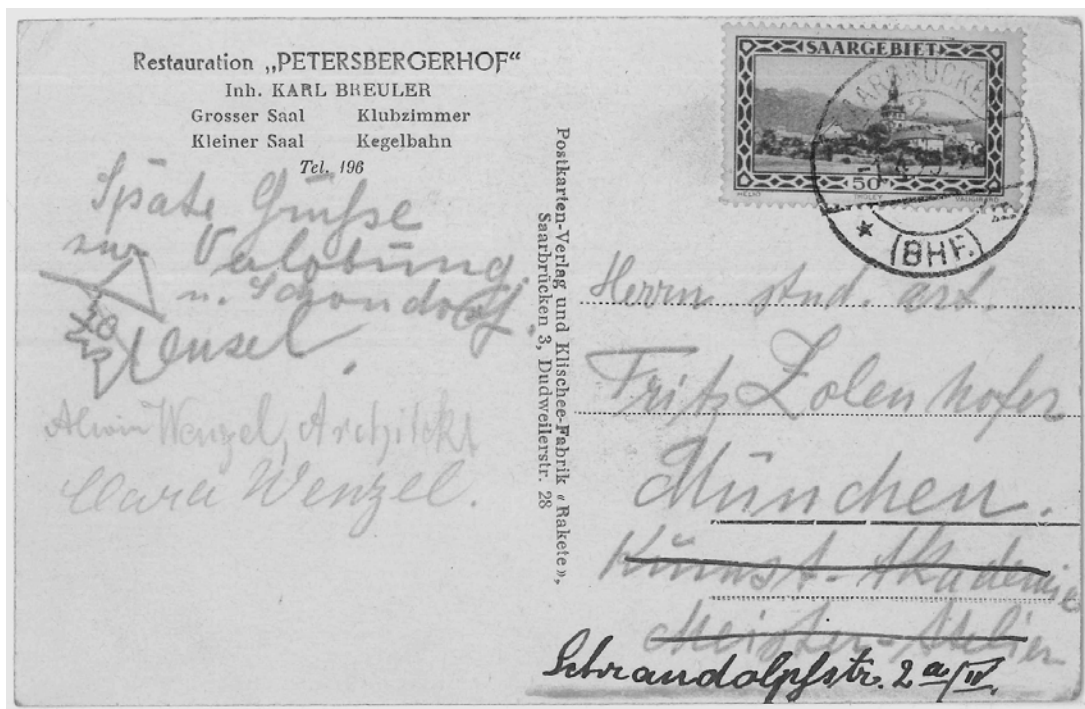 Restauration „PETERSBERGERHOF“
Inh. KARL BREULER
Grosser Saal Klubzimmer
Kleiner Saal Kegelbahn
Tel. 196
Späte Grüße
zur Verlobung.
u. Schondorf.
Alwin Wenzel, Architekt
Clara Wenzel.
Postkarten-Verlag und Klischee-Fabrik «Rakete»,
Saarbrücken 3, Dudweilerstr. 28
SAARGEBIET
50
HELIO VAUGIRARD
SAARBRÜCKEN
2
(BHF.)
Herrn stud. art.
Fritz Zolenhofer
München.
Kunst-Akademie
Meister-Atelier
Schraudolphstr. 2 a/II.